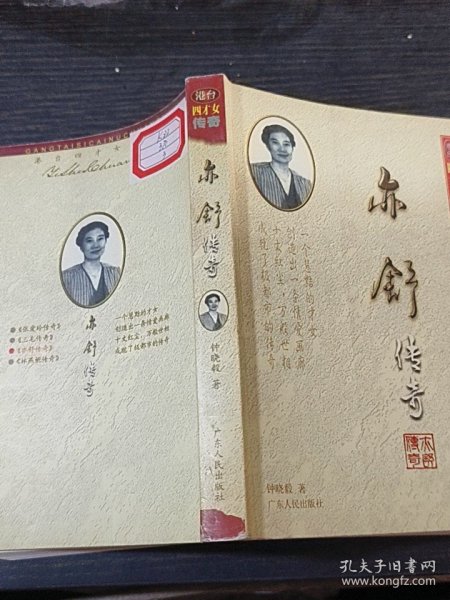 GANGTAISICAINUC
港台四才女
YiShuChuan
亦舒传奇
一个悬黠的才女
创造出一条情爱画廊
十丈红尘,万般世相
成就了级都市的传奇
●《张爱玲传奇》
●《三毛传奇》
●《亦舒传奇》
●《林燕妮传奇》
港台
四才女
传奇
亦舒传奇
钟晓毅 著
广东人民出版社
亦舒传奇
一个悬黠的才女
创造出一条情爱画廊
十丈红尘,万般世相
成就了级都市的传奇
亦舒
传奇
钟晓毅 著
广东人民出版社
孔夫子旧书网
www.kongfz.com